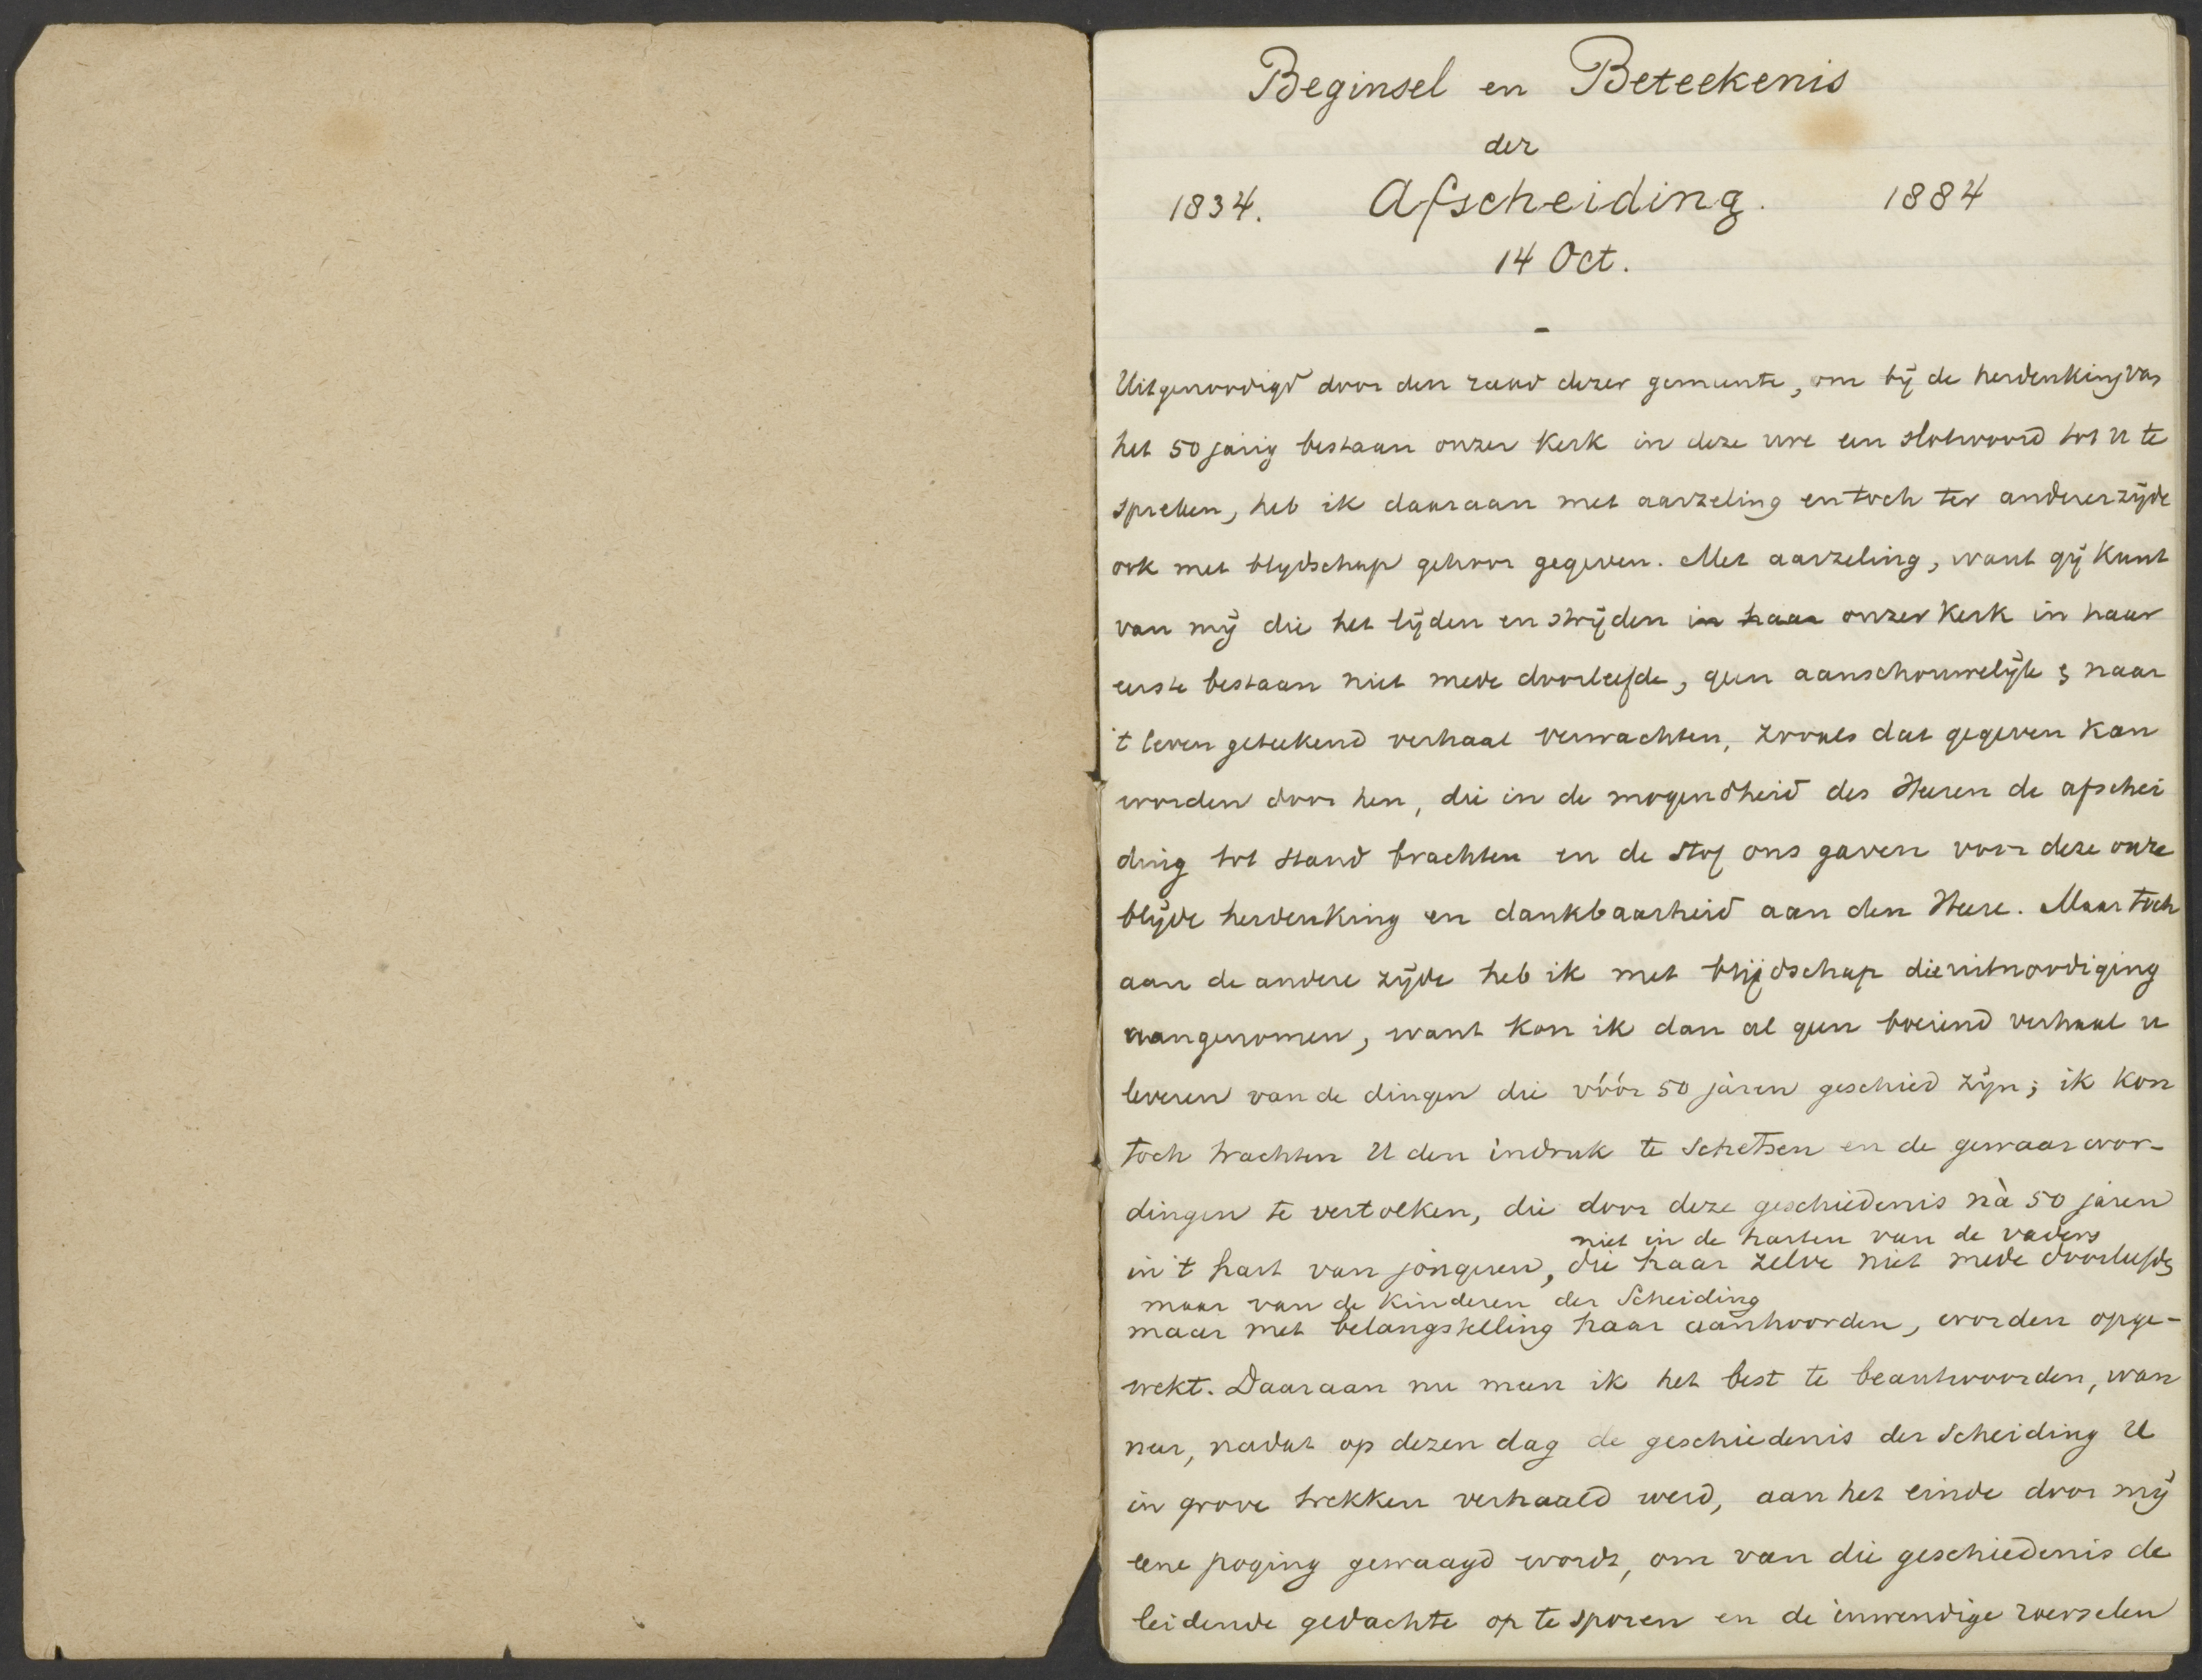 Beginsel en Beteekenis
der
1834. Afscheiding. 1884
14 Oct.
-
Uitgenoodigd door den raad dezer gemeente, om bij de herdenking van
het 50 jarig bestaan onzer Kerk in deze ure een slotwoord tot U te
spreken, heb ik daaraan met aarzeling en toch ter andererzijde
ook met blijdschap gehoor gegeven. Met aarzeling, want gij kunt
van mij die het lijden en strijden in haar onzer Kerk in haar
eerste bestaan niet mede doorleefde, geen aanschouwelijk & naar
't leven geteekend verhaal verwachten, zooals dat gegeven kan
worden door hen, die in de mogendheid des Heeren de afschei
ding tot stand brachten en de stof ons gaven voor deze onze
blijde herdenking en dankbaarheid aan den Heere. Maar toch
aan de andere zijde heb ik met blijdschap die uitnoodiging
aangenomen, want kon ik dan al geen boeiend verhaal u
leveren van de dingen die vóór 50 jaren geschied zijn; ik kon
toch trachten U den indruk te schetsen en de gewaarwor-
dingen te vertolken, die door deze geschiedenis nà 50 jaren
niet in de harten van de vaders
in 't hart van jongeren, die haar zelve niet mede doorleefde,
maar van de kinderen der Scheiding
maar met belangstelling haar aanhoorden, worden opge-
wekt. Daaraan nu meen ik het best te beantwoorden, wan
neer, nadat op dezen dag de geschiedenis der Scheiding U
in grove trekken verhaald werd, aan het einde door mij
eene poging gewaagd wordt, om van die geschiedenis de
leidende gedachte op te sporen en de inwendige roerselen